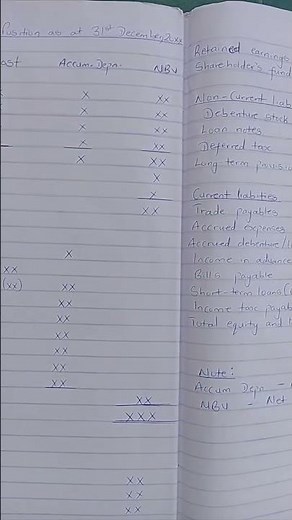 Position as at 31st December, 20xx
ost Accum. Depn. NBV
x xx
x xx
x xx
x xx
x xx
x
x
xx
x
xx
(xx) xx
xx
xx
xx
xx
xx
xx
xx
xxx
xx
xx
xx
Retained earnings
Shareholder's fund
Non-Current liab
Debenture stock
Loan notes
Deferred tax
Long term provisio
Current liabilities
Trade payables
Accrued expenses
Accrued debenture/
Income in advance
Bills payable
Short-term loans
Income tax payab
Total equity and
Note:
Accum Depn -
NBV - Net